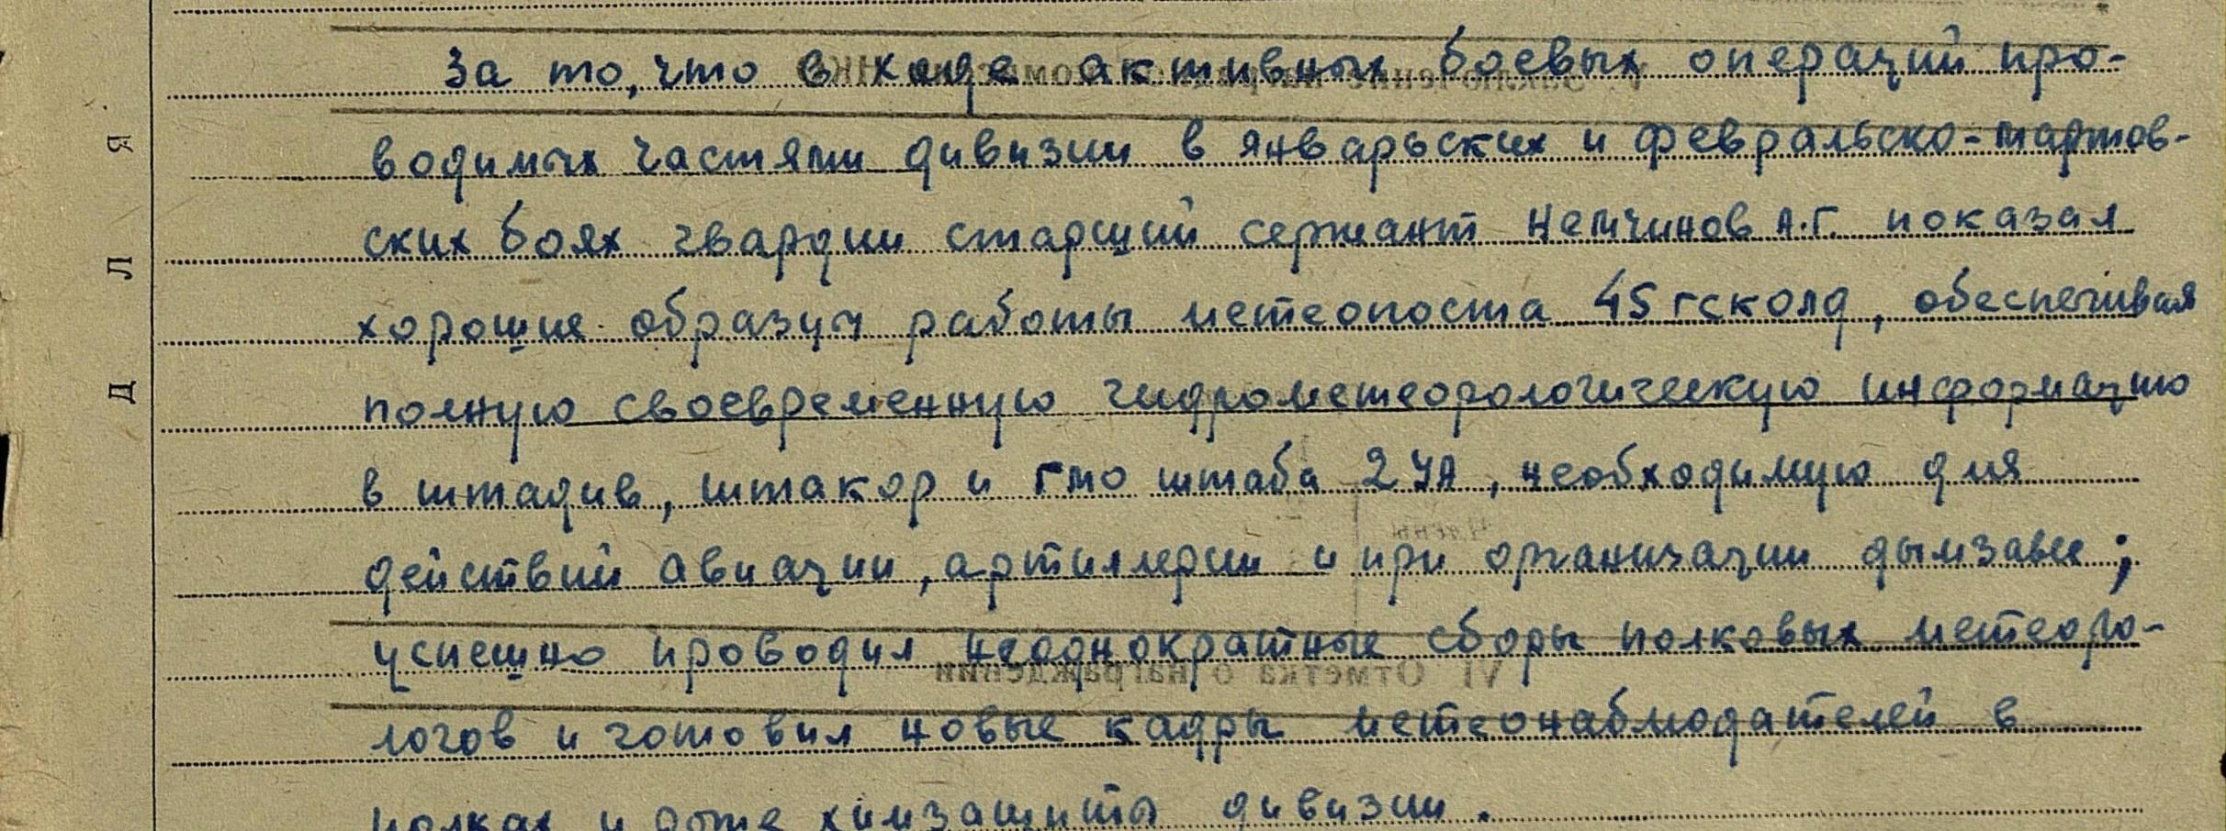 За то, что в ходе активных боевых операций про-
водимых частями дивизии в январьских и февральско-мартов-
ских боях гвардии старший сержант Немчинов А.Г. показал
хорошие образцы работы метеопоста 45 гсколд, обеспечивая
полную своевременную гидрометеорологическую информацию
в штадив, штакор и ГМО штаба 2 УА, необходимую для
действий авиации, артиллерии и при организации дымзавес;
успешно проводил неоднократные сборы полковых метеоро-
логов и готовил новые кадры метеонаблюдателей в
полках и роте химзащиты дивизии.
Д Л Я
V. Заключение
Члены
VI Отметка о награждении